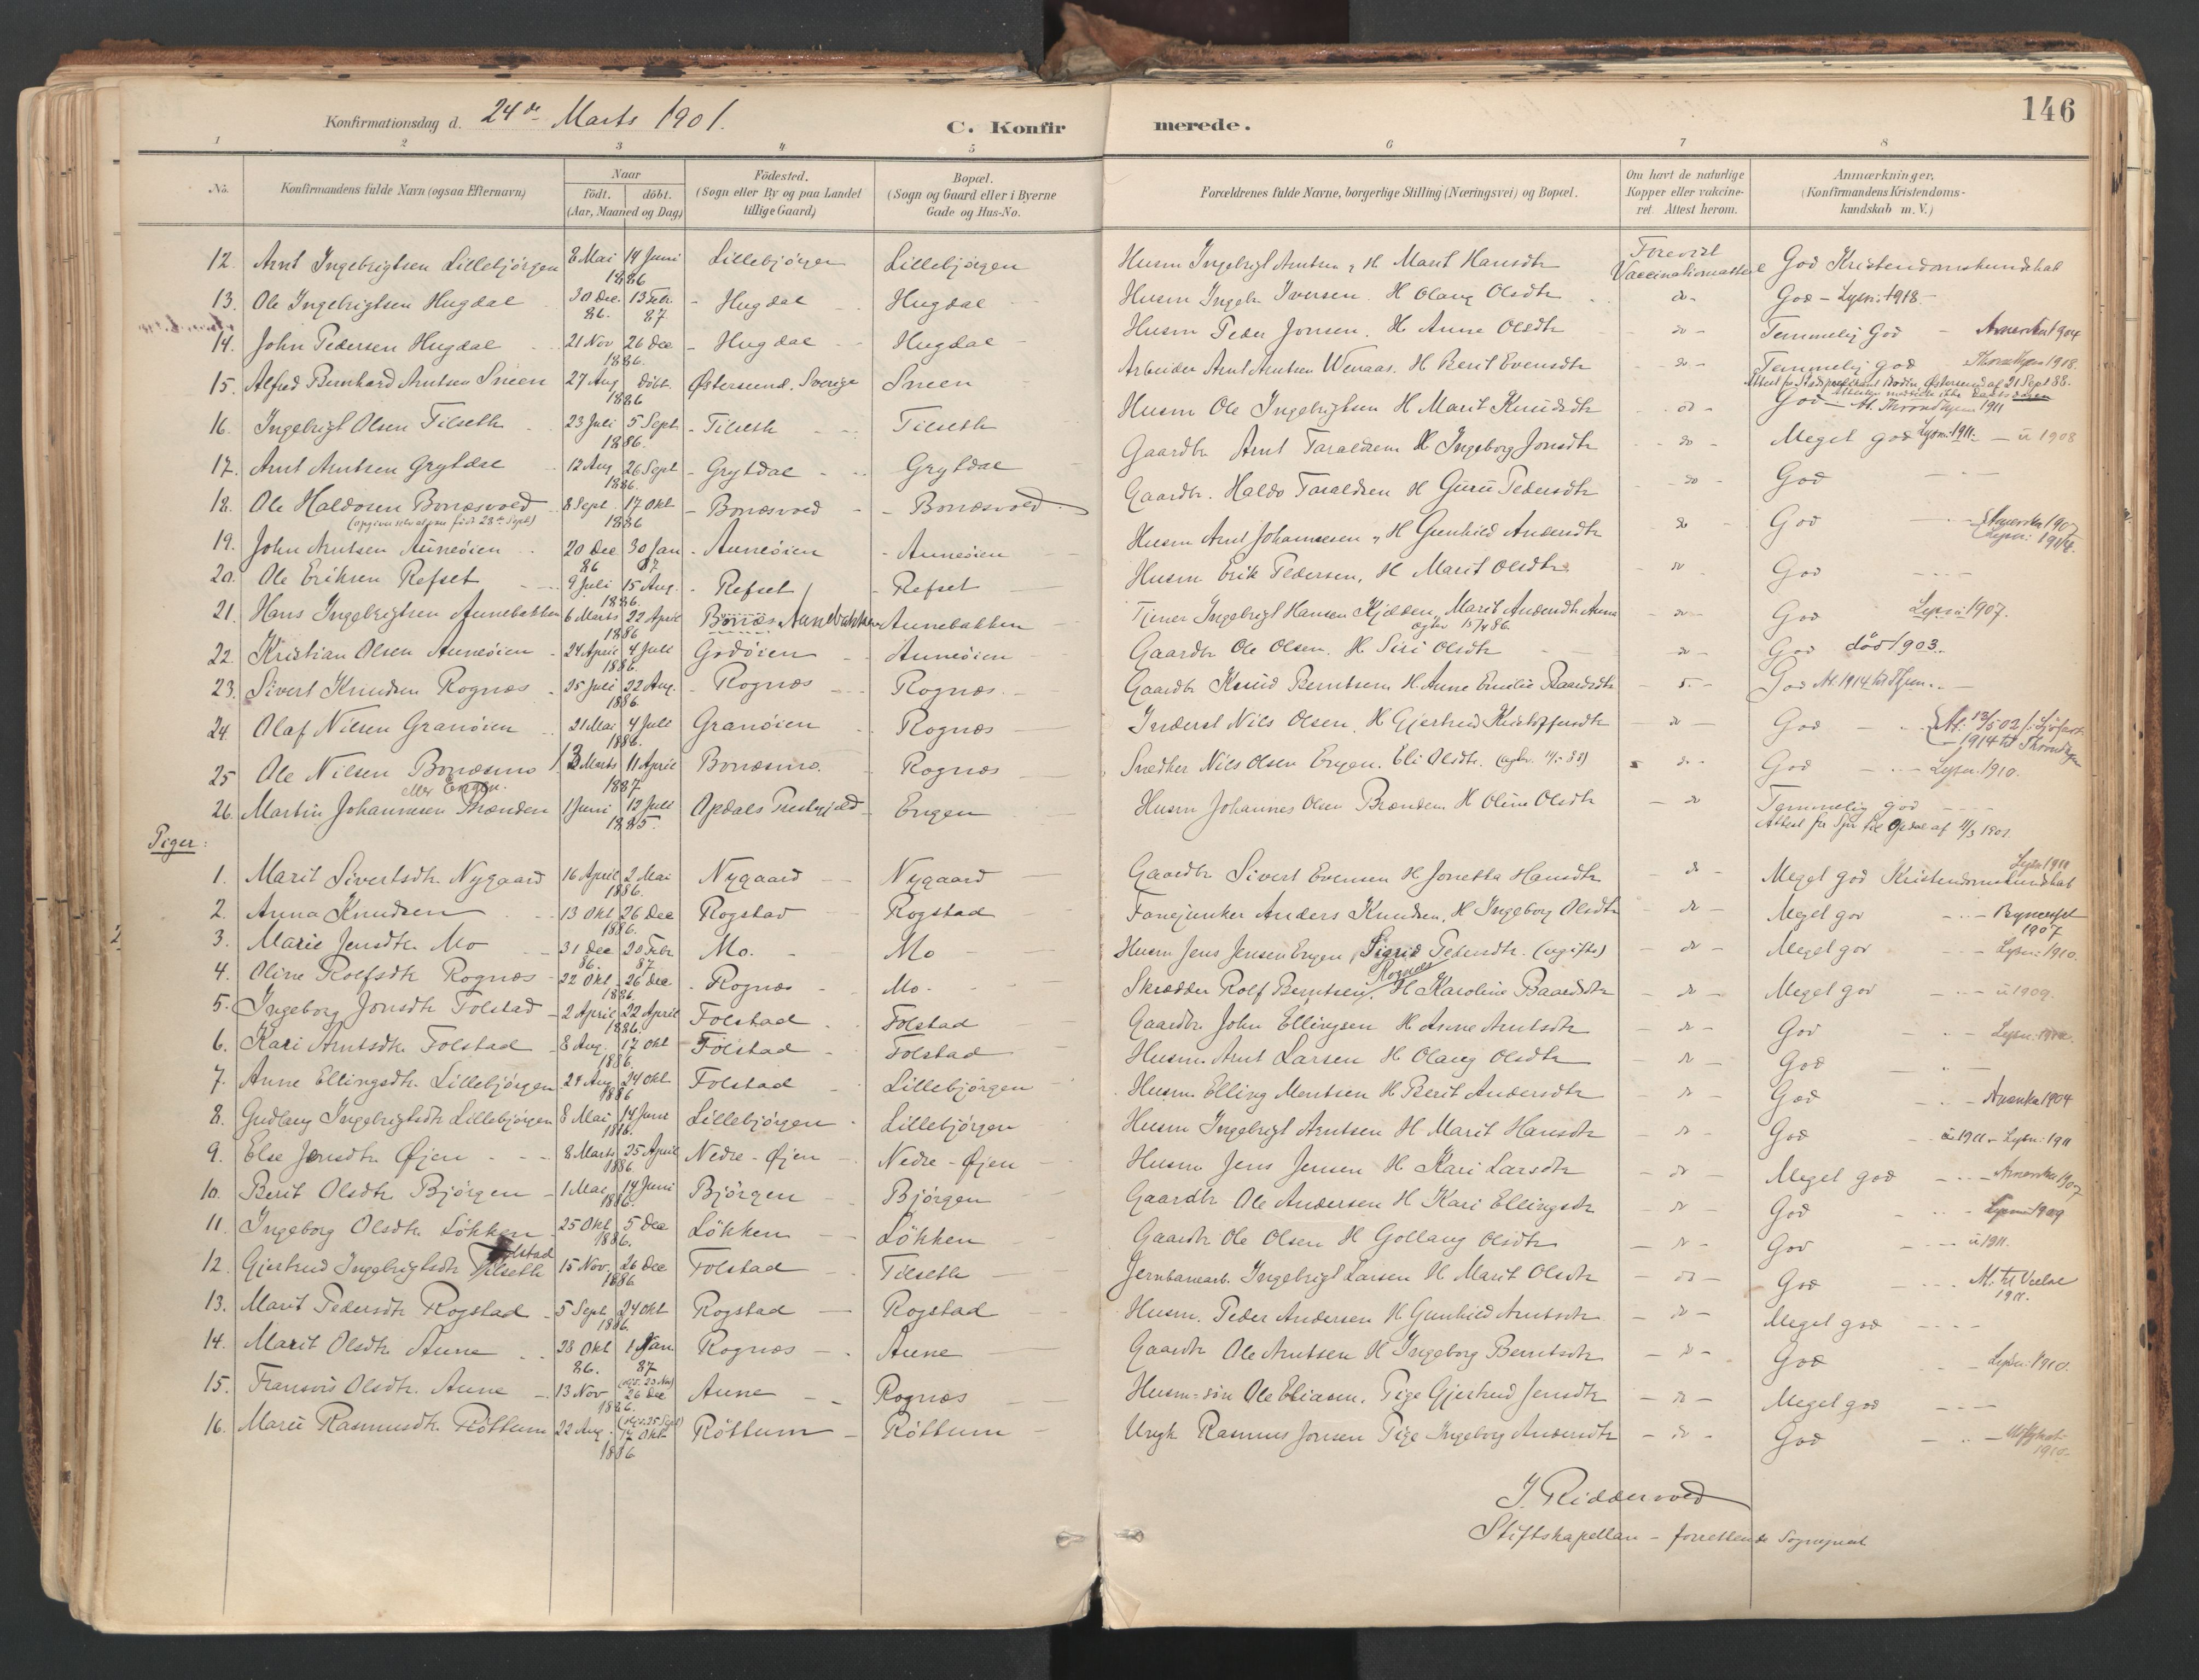 Konfirmationsdag d. 24de Marts 1901.
C. Konfirmerede.
146
1 2 3 4 5 6 7 8
No. Konfirmandens fulde Navn (ogsaa Efternavn) Naar födt. döbt. (Aar, Maaned og Dag) Födested. (Sogn eller By og paa Landet tillige Gaard) Bopæl. (Sogn og Gaard eller i Byerne Gade og Hus-No. Forældrenes fulde Navne, borgerlige Stilling (Næringsvei) og Bopæl. Om havt de naturlige Kopper eller vakcineret. Attest herom. Anmærkninger. (Konfirmandens Kristendomskundskab m. V.)
12. Arnt Ingebrigtsen Lillebjörgen 8 Mai 14 Juni 1886 Lillebjörgen Lillebjörgen Husm Ingebrigt Arntsen, H Marit Hansdtr Forevist Vaccinationsattest God Kristendomskundskab
13. Ole Ingebrigtsen Hugdal 30 Dec. 86. 13 Febr 87 Hugdal Hugdal Husm Ingebr Iversen. H Olaug Olsdtr do God - Lysn: 1918.
14. John Pedersen Hugdal 21 Nov 26 Dec 1886. Hugdal Hugdal Husm Peder Jonsen. H Anne Olsdtr do Temmelig God - Amerika 1904
15. Alfred Bernhard Arntsen Sneen 27 Aug döbt. 1886 Østersund. Sverige Sneen Arbeider Arnt Arntsen Wenaas. H Berit Evensdtr do Temmelig god Throndhjem 1918.
Attest fr Stadspredikant Bodin Østersund af 21 Sept 88.
16. Ingebrigt Olsen Tilseth 23 Juli 5 Sept 1886. Tilseth Tilseth Husm Ole Ingebrigtsen H Marit Knudsdtr do God - At. Throndhjem 1911
17. Arnt Arntsen Grytdal 12 Aug 26 Sept 1886. Grytdal Grytdal Gaardbr Arnt Taraldsen H Ingeborg Jonsdtr do Meget god Lysn: 1911. - u 1908
18. Ole Haldosen Bonæsvold 8 Sept. 17 Okt 1886 Bonæsvold Bonæsvold Gaardbr. Haldo Taraldsen H Guru Pedersdtr do God
(opgiver selv at være född 28de Sept)
19. John Arntsen Auneöien 20 Dec 86 30 Jan 87 Auneöien Auneöien Husm Arnt Johannesen, H Gunhild Andersdtr do God Amerika 1907 Lysn: 1914.
20. Ole Eriksen Refset 9 Juli 15 Aug. 1886. Refset Refset Husm Erik Pedersen, H Marit Olsdtr do God
21. Hans Ingebrigtsen Aunebakken 6 Marts 22 April 1886 Bonæs Aunebakken Aunebakken Tjener Ingebrigt Hansen Kjelden, Marit Andersdtr Aune do God Lysn: 1907.
22. Kristian Olsen Auneöien 24 April 4 Juli 1886. Godöien Auneöien Gaardbr Ole Olsen. H Siri Olsdtr do God död 1903.
23. Sivert Knudsen Rognæs 25 Juli 22 Aug. 1886 Rognæs Rognæs. Gaardbr Knud Berntsen H. Anne Emilie Baardsdtr do God At. 1914 til Thjem.
24. Olaf Nilsen Granöien 21 Mai 4 Juli 1886. Granöien Rognæs Inderst Nils Olsen. H Gjertrud Kristoffersdtr do God At. 13/5 02 f. Sjöfart 1914 til Throndhjem
25 Ole Nilsen Bonæsmo 13 Marts 11 April 1887 Bonæsmo. Rognæs Snedker Nils Olsen Engen. Eli Olsdtr. do God Lysn. 1910.
eller Engen.
26. Martin Johannesen Brænden 1 Juni 12 Juli 1885. Opdals Præstegjeld Engen Husm Johannes Olsen Brænden H Oline Olsdtr do Temmelig god
Attest fra Spr til Opdal af 11/3 1901
Piger:
1. Marit Sivertsdtr Nygaard 16 April 2 Mai 1886. Nygaard Nygaard Gaardbr Sivert Evensen H Jonetta Hansdtr do Meget god Kristendomskundskab Lysn 1911
2. Anna Knudsen 13 Okt 26 Dec 1886. Rogstad Rogstad Fanejunker Anders Knudsen, H Ingeborg Olsdtr do Meget god Byneset 1907
3. Marie Jensdtr Mo 31 Dec 86. 20 Febr 87 Mo. Mo Husm Jens Jensen Engen, Sigrid Pedersdtr. (ugifte) do Meget god Lysn: 1910.
4. Oline Rolfsdtr Rognæs 22 Okt 26 Dec 1886. Rognæs Mo. Skrædder Rolf Berntsen Rognæs, H Karoline Baardsdtr do Meget god u 1909.
5. Ingeborg Jonsdtr Folstad 2 April 22 April 1886. Folstad Folstad Gaardbr John Ellingsen H Anne Arntsdtr do God
6. Kari Arntsdtr Folstad 8 Aug. 17 Okt 1886. Folstad Folstad Husm. Arnt Larsen H Olaug Olsdtr do God
7. Anne Ellingsdtr. Lillebjörgen 24 Aug 24 Okt 1886 Folstad Lillebjörgen Husm. Elling Mentsen H Berit Andersdtr do God Amerika 1904
8. Gudlaug Ingebrigtsdtr Lillebjörgen 8 Mai 14 Juni 1886. Lillebjörgen Lillebjörgen Husm Ingebrigt Arntsen H Marit Hansdtr do God u 1911 - Lysn: 1911
9. Else Jensdtr Øjen 8 Marts 25 April 1886. Nedre-Øjen Nedre-Øjen Husm Jens Jensen H Kari Larsdtr do Meget god Amerika 1907
10. Berit Olsdtr Björgen 1 Mai 14 Juni 1886. Björgen Björgen Gaardbr Ole Andersen H Kari Ellingsdtr do God Lysn 1909
11. Ingeborg Olsdtr Lökken 25 Okt 5 Dec 1886. Lökken Lökken Gaardbr Ole Olsen H Gollaug Olsdtr do God u 1911.
12. Gjertrud Ingebrigtsdtr Tilseth Folstad 15 Nov. 26 Dec 1886 Folstad Tilseth Jernbanearb. Ingebrigt Larsen H Marit Olsdtr do God
13. Marit Pedersdtr Rogstad 5 Sept 24 Okt 1886. Rogstad Rogstad Husm. Peder Andersen H Gunhild Arntsdtr do Meget god
14. Marit Olsdtr Aune 28 Okt 86. 1 Jan 87 Rognæs Aune Gaardbr Ole Arntsen H Ingeborg Berntsdtr do God Lysn: 1910.
15. Fransois Olsdtr. Aune 13 Nov 26 Dec 1886. Aune Rognæs Husm-sön Ole Eliasen. Pige Gjertrud Jensdtr do Meget god
16. Marie Rasmusdtr Röttum 22 Aug. 17 Okt 1886 Röttum Röttum Ungk Rasmus Jonsen Pige Ingeborg Andersdtr do God
J. Riddervold
Stiftskapellan - forrettende Sogneprest